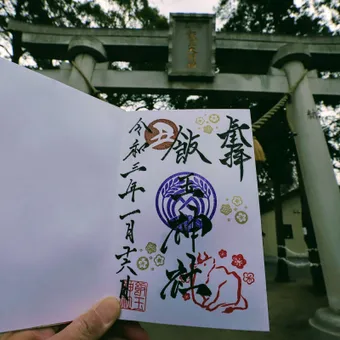 奉拝
飯玉神社
丑
令和三年一月十六日